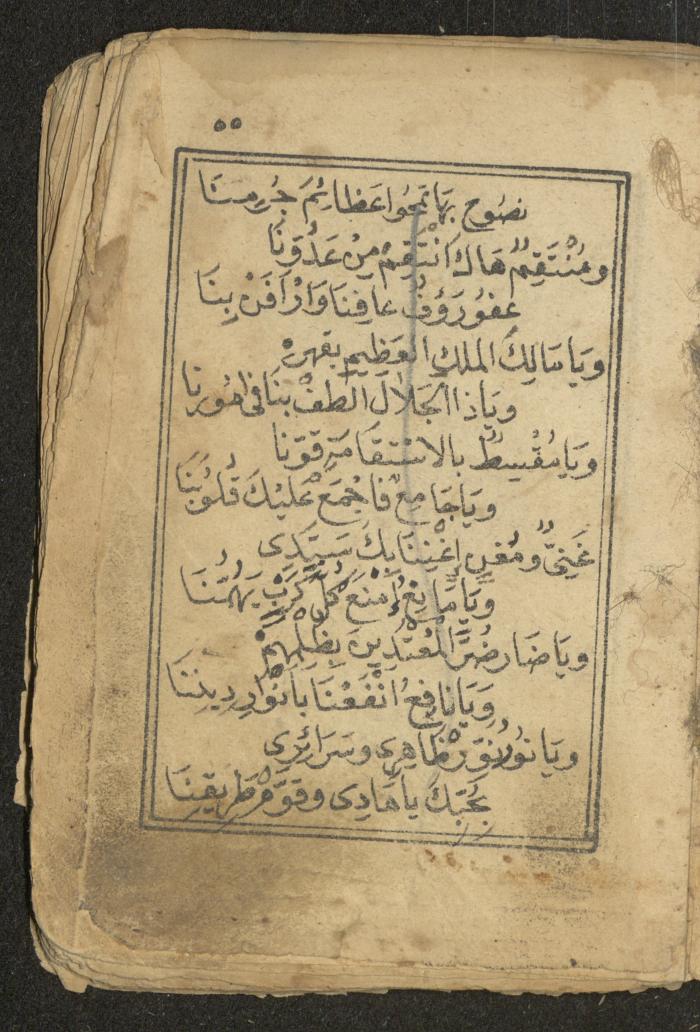 ٥٥
نصُوح بِهَا تمحُوا عَظَائِمَ جُرمِنَا
وَمُنْتَقِمٌ هَاكَ انْتَقِمْ مِنْ عَدُوِّنَا
عفوُ رَؤُفٌ عافِنَا وَارْأفَنْ بِنَا
وَيَا مَالِكَ الملكِ العَظِيمِ بِقَهرِهْ
وَيَاذَا الجَلَالِ الْطفْ بنَا فىِ امُورِنَا
وَيَا مُقْسِطٌ بالاسْتقَامَةِ قَوِّنَا
وَيَاجَامِعٌ فاجْمَعْ عَلَيْكَ قُلُوبَنَا
غَنِيٌّ ومُغنٍ اِغْنِنَا بِكَ سَيِّدِى
وَيَا مَانِعُ اِمنَعْ كُلَّ كَربٍ يَهُمُّنَا
وَيا ضَار ضُرَّ المُعْتَدِينَ بِظُلْمِهِمْ
وَيَا نافِعُ انْفَعْنَا بِانْوَارِ دِينِنَا
وَيَا نورُ نوِّرْ ظَاهِرِى وسَرَائِرِى
بِحُبِّكَ ياهَادِى وقَوِّمْ طَرِيقنَا